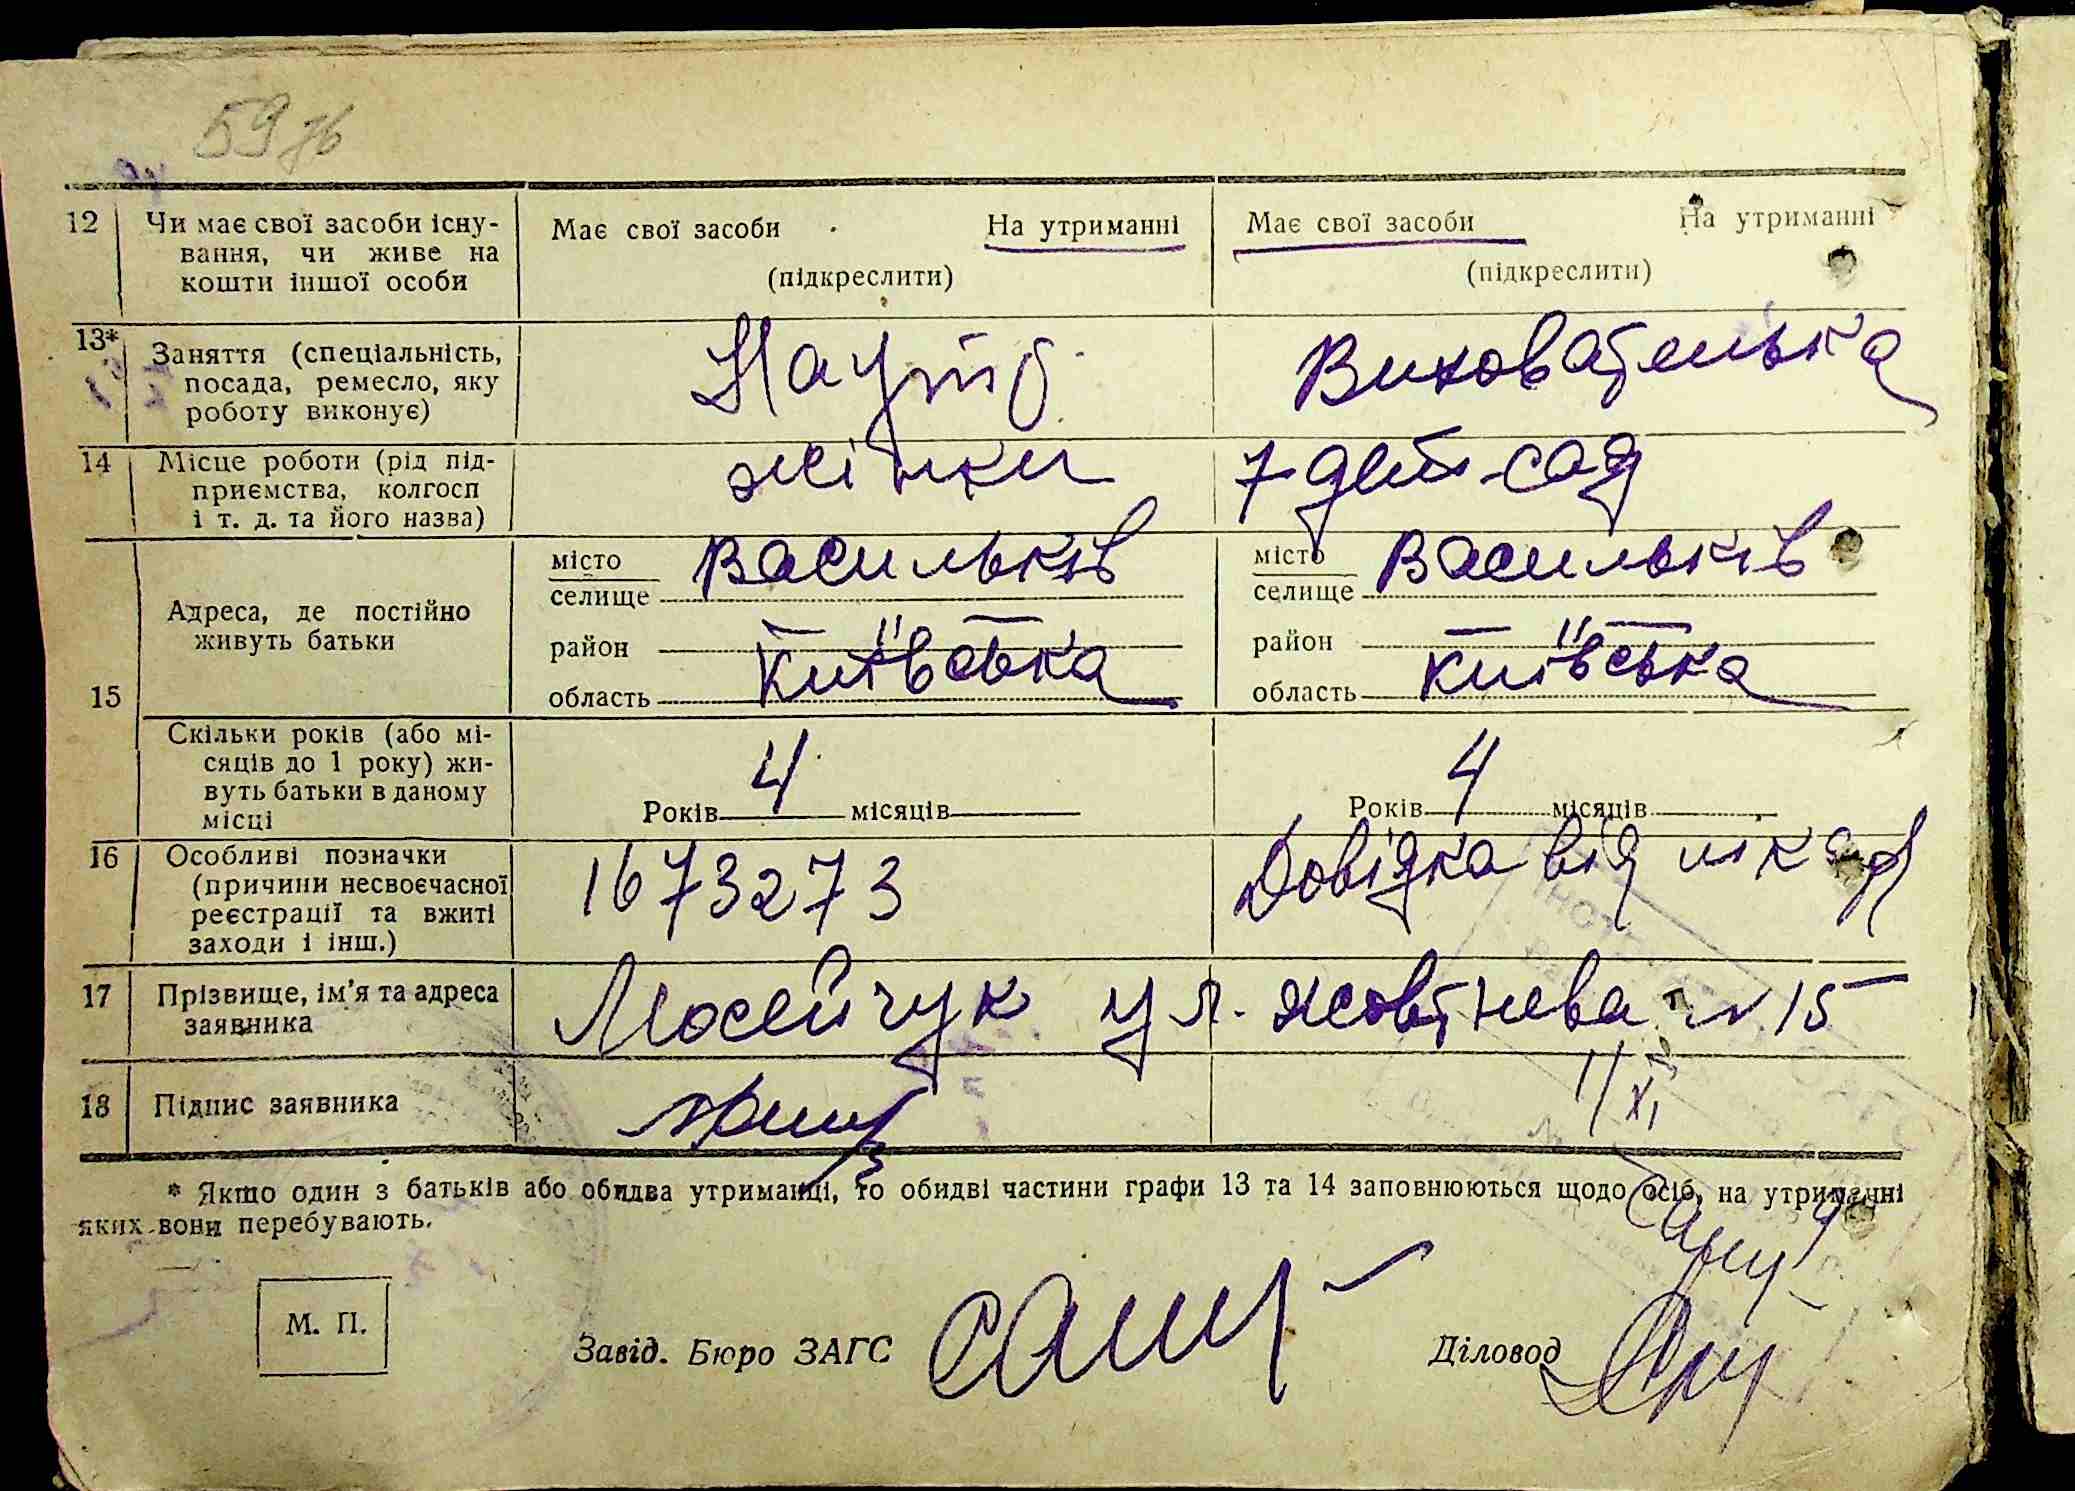 59 зв
12 Чи має свої засоби існу-
вання, чи живе на
кошти іншої особи
Має свої засоби На утриманні
(підкреслити)
Має свої засоби На утриманні
(підкреслити)
13* Заняття (спеціальність,
посада, ремесло, яку
роботу виконує)
На утр.
Вихователька
14 Місце роботи (рід під-
приємства, колгосп
і т. д. та його назва)
жінки
7 дет-сад
15 Адреса, де постійно
живуть батьки
місто Васильків
селище
район — " —
область Київська
місто Васильків
селище
район — " —
область Київська
Скільки років (або мі-
сяців до 1 року) жи-
вуть батьки в даному
місці
Років 4 місяців
Років 4 місяців
16 Особливі позначки
(причини несвоєчасної
реєстрації та вжиті
заходи і інш.)
1673273
Довідка від лікар
17 Прізвище, ім'я та адреса
заявника
Мосейчук ул. Жовтнева № 15
18 Підпис заявника
11/XI
* Якщо один з батьків або обидва утриманці, то обидві частини графи 13 та 14 заповнюються щодо осіб, на утриманні
яких вони перебувають.
М. П.
Завід. Бюро ЗАГС
Діловод